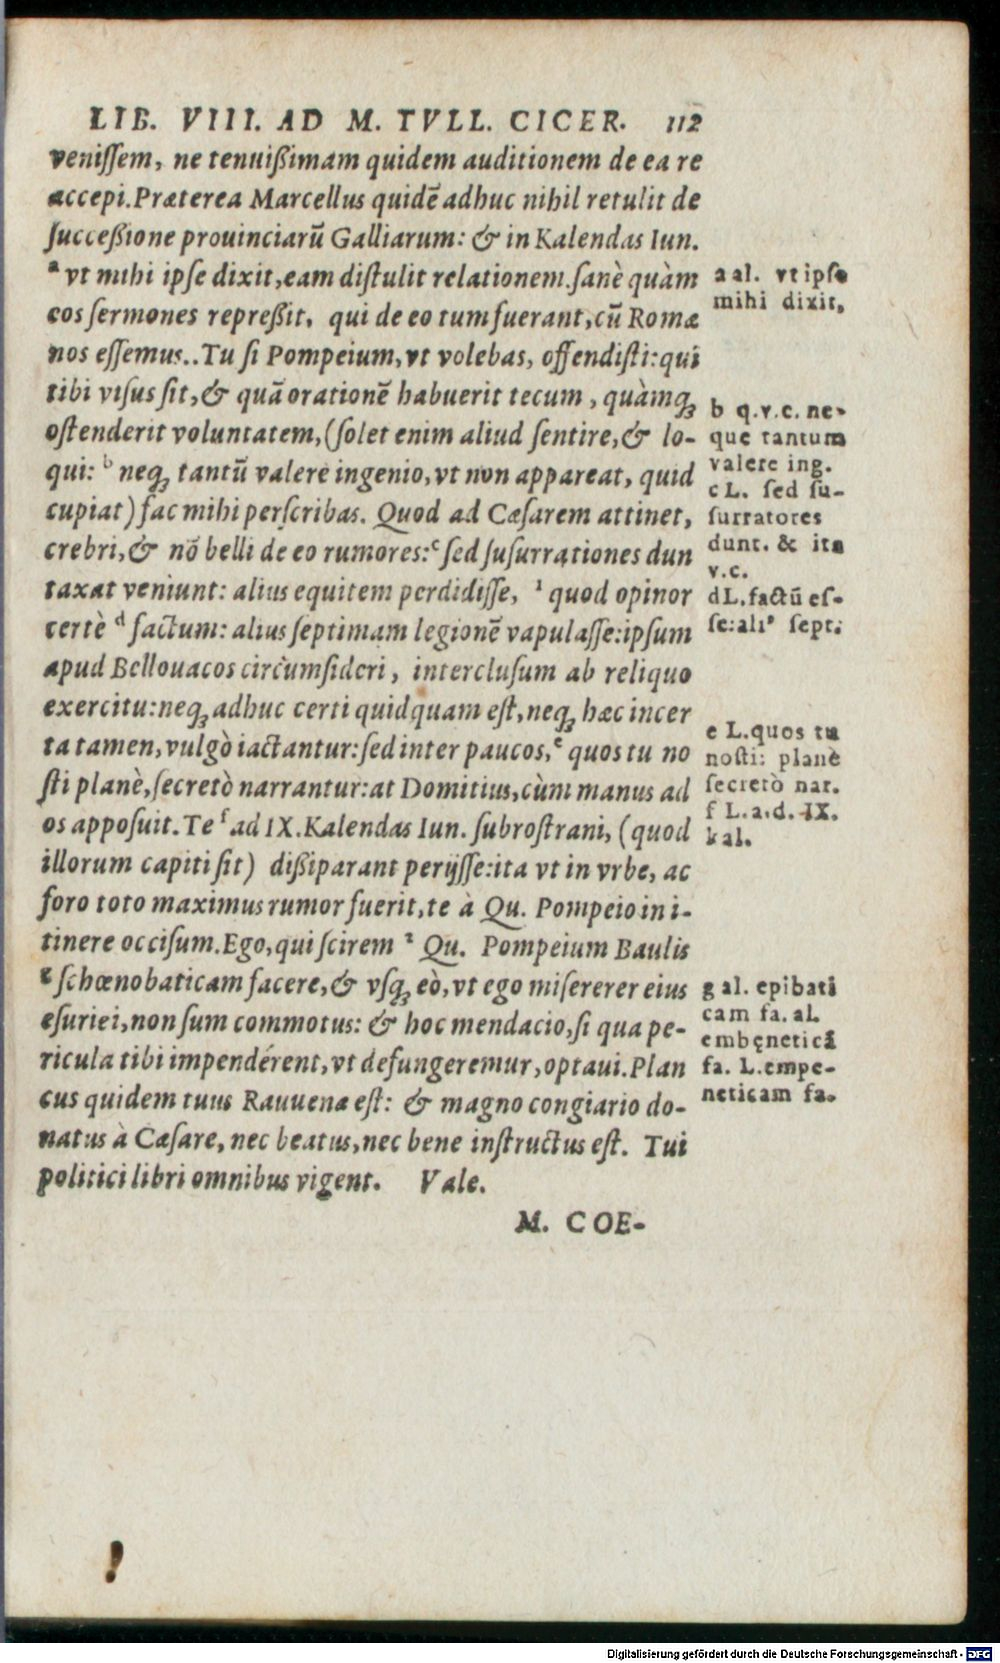 LIB. VIII. AD M. TVLL. CICER. 112
veniſſem, ne tenuißimam quidem auditionem de ea re
accepi. Præterea Marcellus quidē adhuc nihil retulit de
ſucceßione prouinciarū Galliarum: & in Kalendas Iun.
ᵃ vt mihi ipſe dixit, eam diſtulit relationem. ſanè quàm
eos ſermones repreßit, qui de eo tum fuerant, cū Romæ
nos eſſemus.. Tu ſi Pompeium, vt volebas, offendiſti: qui
tibi viſus ſit, & quā orationē habuerit tecum, quàmq;
oſtenderit voluntatem, (ſolet enim aliud ſentire, & lo-
qui: ᵇ neq; tantū valere ingenio, vt non appareat, quid
cupiat) fac mihi perſcribas. Quod ad Cæſarem attinet,
crebri, & nō belli de eo rumores: ᶜ ſed ſuſurrationes dun
taxat veniunt: alius equitem perdidiſſe, ¹ quod opinor
certè ᵈ factum: alius ſeptimam legionē vapulaſſe: ipſum
apud Bellouacos circùmſideri, interclusum ab reliquo
exercitu: neq; adhuc certi quidquam eſt, neq; hæc incer
ta tamen, vulgò iactantur: ſed inter paucos, ᵉ quos tu no
ſti planè, ſecretò narrantur: at Domitius, cùm manus ad
os appoſuit. Te ᶠ ad IX. Kalendas Iun. ſubroſtrani, (quod
illorum capiti ſit) dißiparant perijſſe: ita vt in vrbe, ac
foro toto maximus rumor fuerit, te à Qu. Pompeio in i-
tinere occiſum. Ego, qui ſcirem ² Qu. Pompeium Baulis
ᵍ ſchœnobaticam facere, & vſq; eò, vt ego miſererer eius
eſuriei, non ſum commotus: & hoc mendacio, ſi qua pe-
ricula tibi impendérent, vt defungeremur, optaui. Plan
cus quidem tuus Rauuenæ eſt: & magno congiario do-
natus à Cæſare, nec beatus, nec bene inſtructus eſt. Tui
politici libri omnibus vigent. Vale.
M. COE-
a al. vt ipſe
mihi dixit,
b q.v.c. ne-
que tantum
valere ing.
c L. ſed ſu-
ſurratores
dunt. & ita
v.c.
d L. factū eſ-
ſe: aliꝰ ſept.
e L. quos tu
noſti: planè
ſecretò nar.
f L. a.d. IX.
kal.
g al. epibati
cam fa. al.
embęneticā
fa. L. empe-
neticam fa.
Digitalisierung gefördert durch die Deutsche Forschungsgemeinschaft - DFG